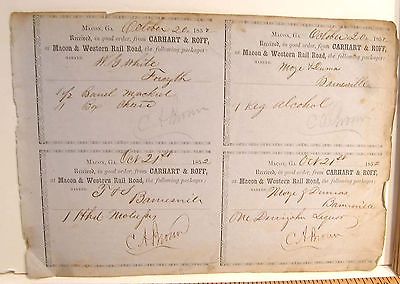 Macon, Ga. October 20 185
Received, in good order, from CARHART & ROFF,
at Macon & Western Rail Road, the following packages:
MARKED
W. G. White
Forsyth
1/2 Barrel Mackrel
C A Brown
Macon, Ga. October 20 185
Received, in good order, from CARHART & ROFF,
at Macon & Western Rail Road, the following packages:
MARKED
Barnesville
1 Keg Alcohol
C A Brown
Macon, Ga. Oct 21st 1852
Received, in good order, from CARHART & ROFF,
at Macon & Western Rail Road, the following packages:
MARKED
Barnesville
1 Hhd Molasses
C A Brown
Macon, Ga. Oct 21st 1852
Received, in good order, from CARHART & ROFF,
at Macon & Western Rail Road, the following packages:
MARKED
Barnesville
One Liquor
C A Brown